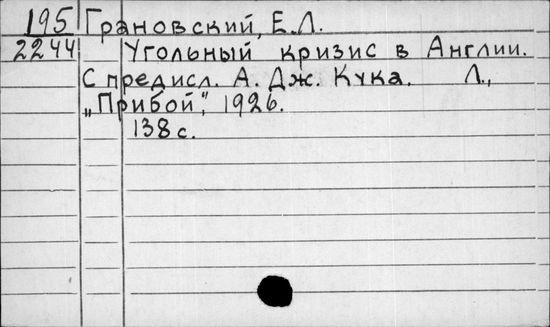 195 Грановский, Е.Л.
2244 Угольный кризис в Англии.
С предисл. А. Дж. Кука. Л.,
„Прибой", 1926.
138 с.